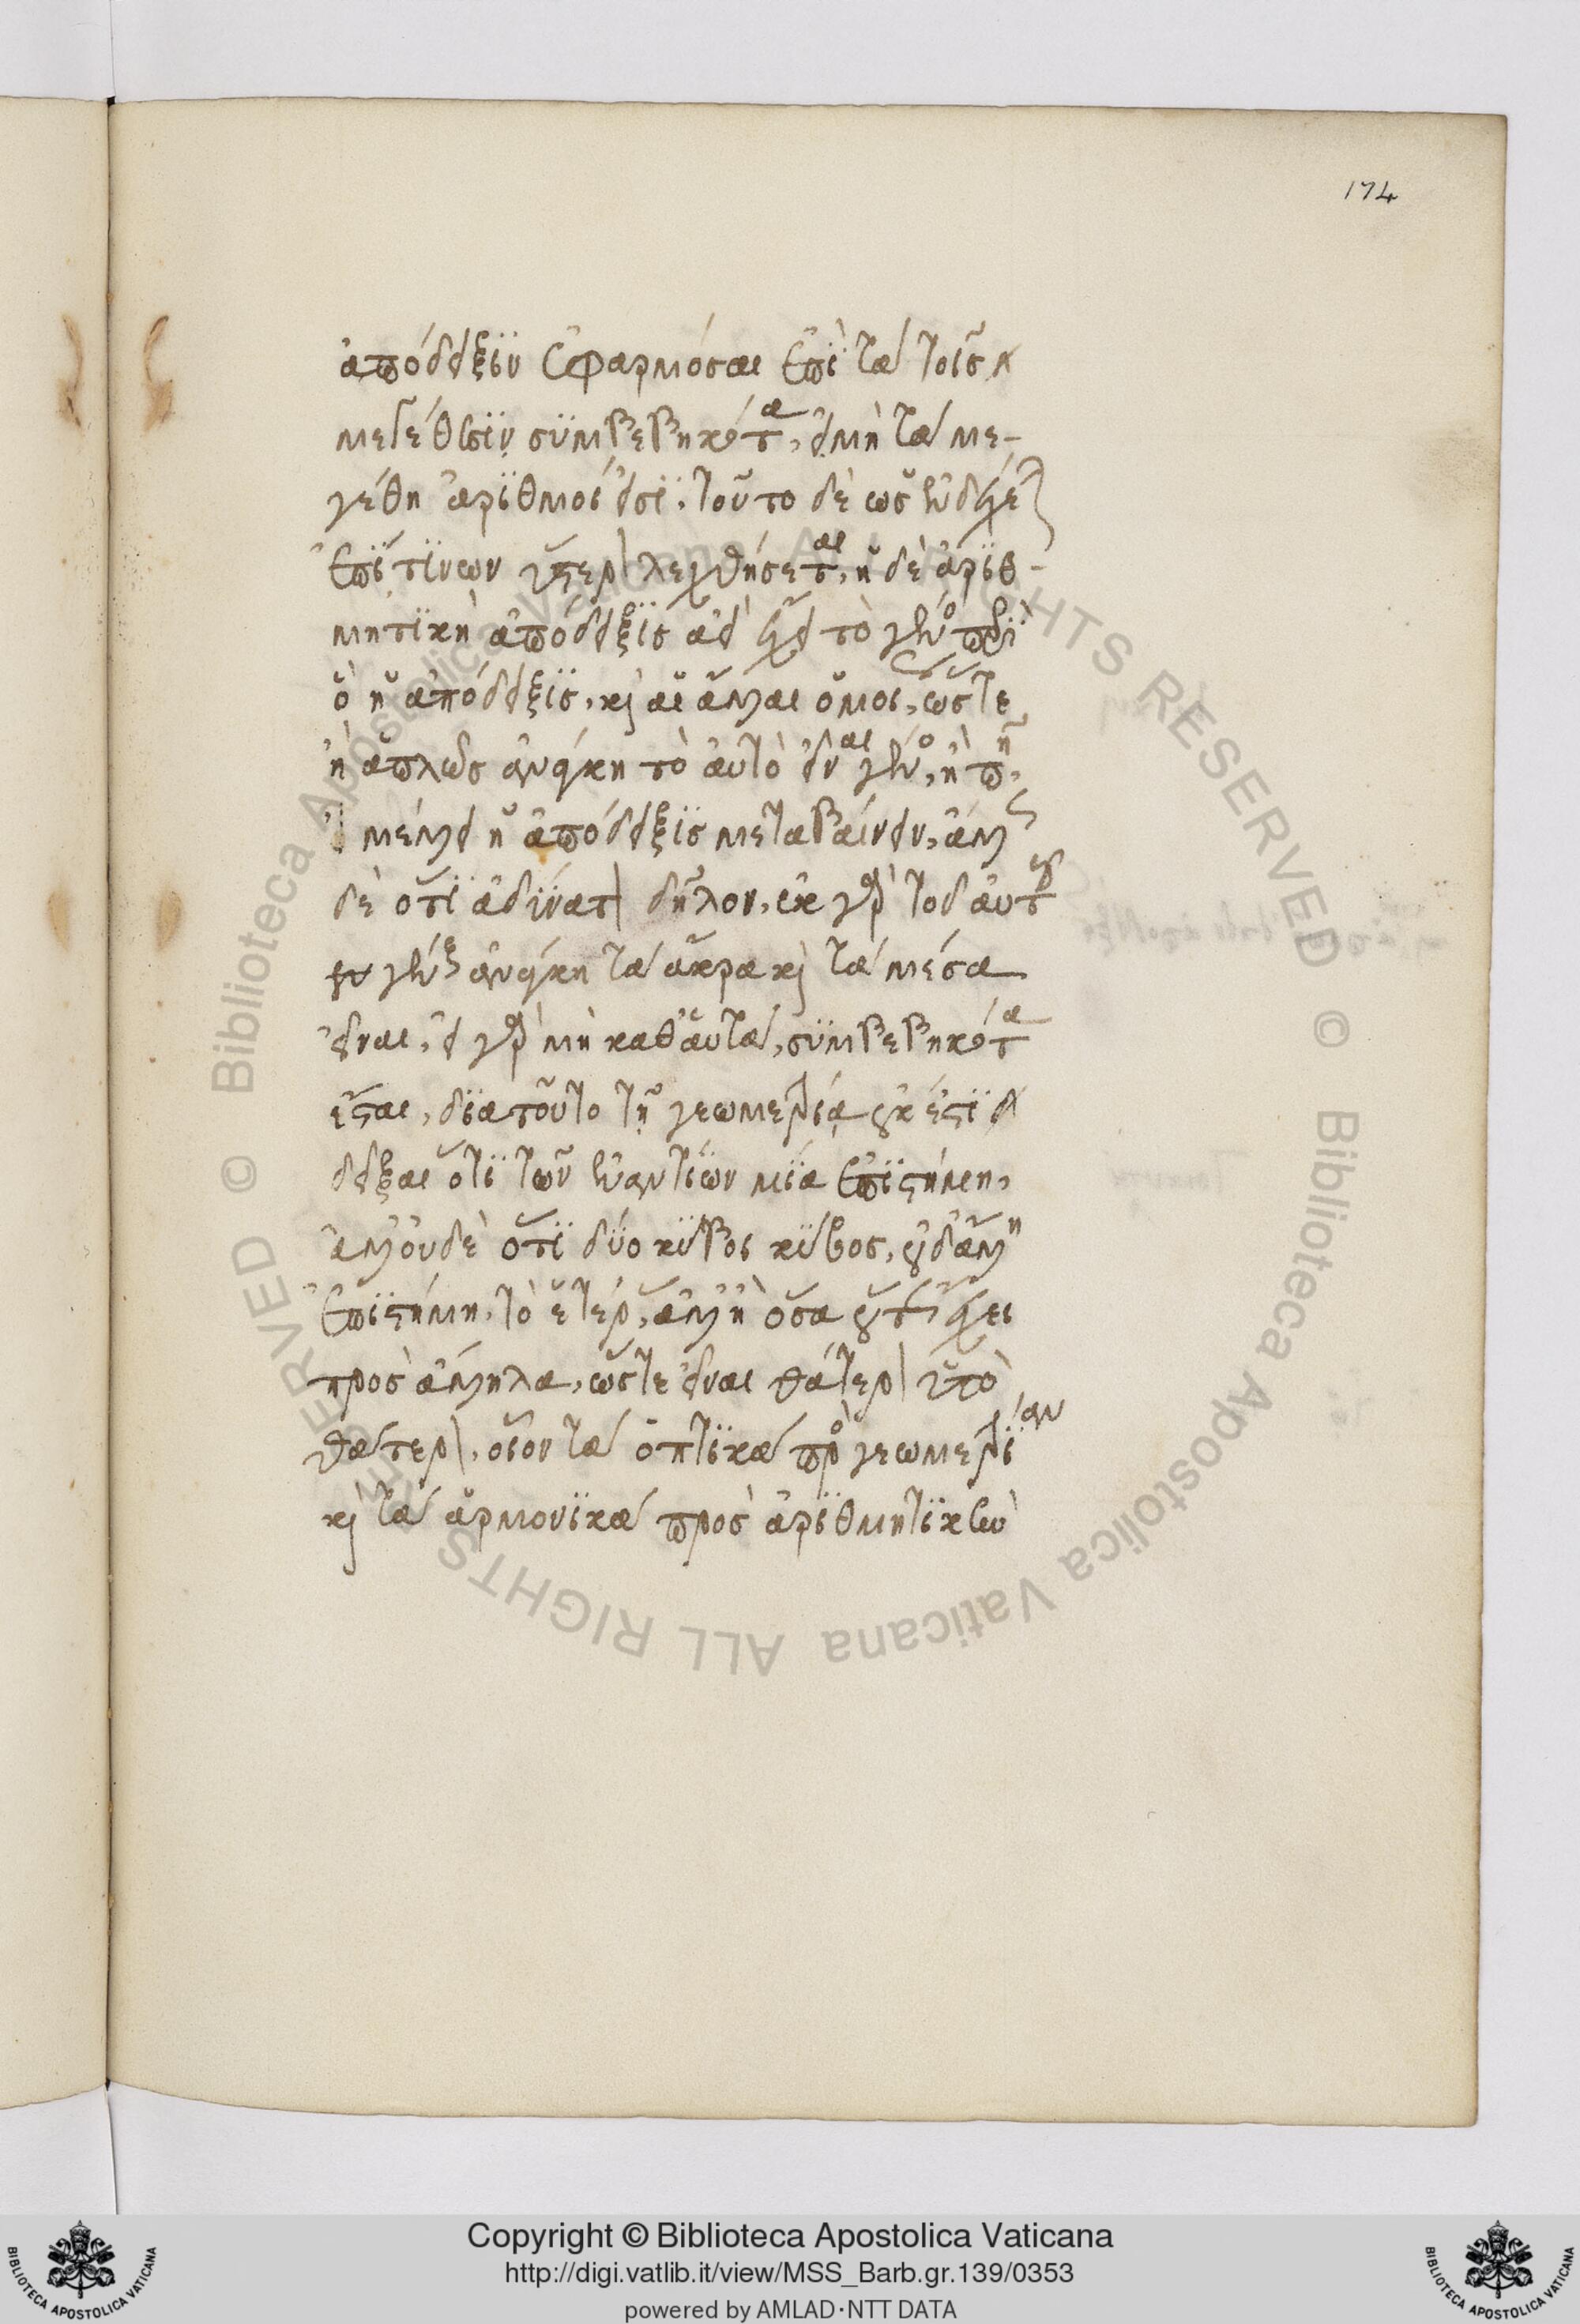 174
ἀπόδειξιν ἐφαρμόσαι ἐπὶ τὰ τοῖς
μεγέθεσιν συμβεβηκότα, εἰ μὴ τὰ με-
γέθη ἀριθμοί εἰσι. τοῦτο δὲ ὡς ἐνδέχεται
ἐπί τινων ὕστερον λεχθήσεται, ἡ δὲ ἀριθ-
μητικὴ ἀπόδειξις ἀεὶ ἔχει τὸ γένος περὶ
ὃ ἡ ἀπόδειξις, καὶ αἱ ἄλλαι ὅμοι, ὥστε
ἢ ἁπλῶς ἀνάγκη τὸ αὐτὸ εἶναι γένος, ἢ πῆ,
εἰ μέλλει ἡ ἀπόδειξις μεταβαίνειν, ἄλλως
δὲ ὅτι ἀδύνατον δῆλον, ἐκ γὰρ τοῦ αὐτοῦ
γένους ἀνάγκη τὰ ἄκρα καὶ τὰ μέσα
εἶναι, εἰ γὰρ μὴ καθ' αὑτά, συμβεβηκότα
ἔσται, διατοῦτο τῇ γεωμετρίᾳ οὐκ ἔστι
δεῖξαι ὅτι τῶν ἐναντίων μία ἐπιστήμη,
ἀλλ' οὐδὲ ὅτι δύο κύβοι κύβος, οὐδ' ἄλλη
ἐπιστήμη τὸ ἑτέρας, ἀλλ' ἢ ὅσα οὕτως ἔχει
πρὸς ἄλληλα, ὥστε εἶναι θάτερον ὑπὸ
θάτερον, οἷον τὰ ὀπτικὰ πρὸς γεωμετρίαν
καὶ τὰ ἁρμονικὰ πρὸς ἀριθμητικὴν
Copyright © Biblioteca Apostolica Vaticana
http://digi.vatlib.it/view/MSS_Barb.gr.139/0353
powered by AMLAD·NTT DATA